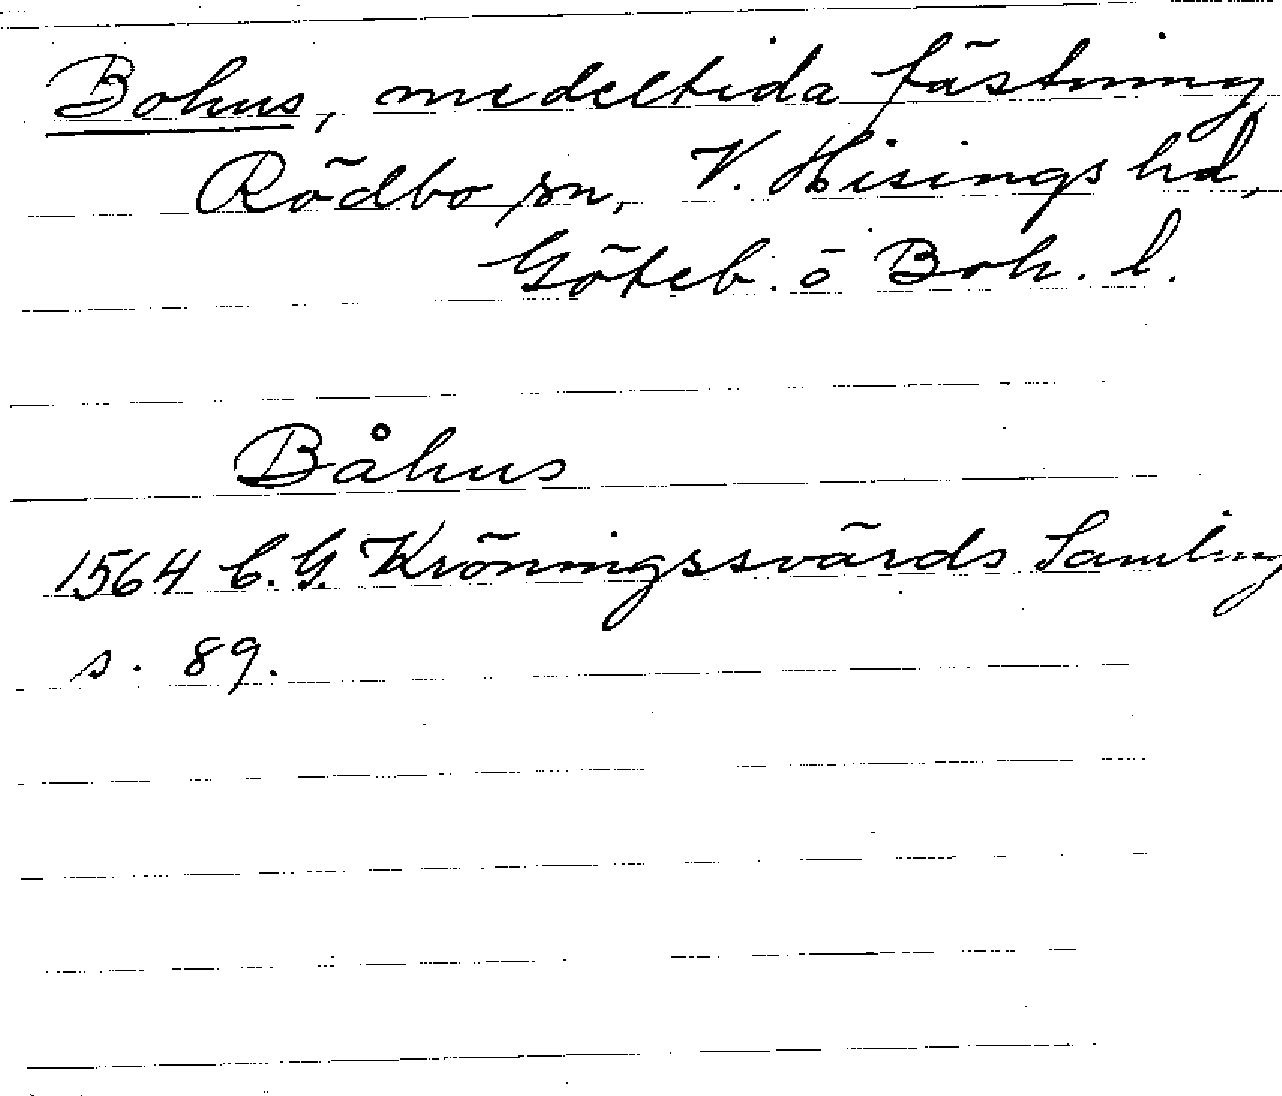 Bohus, medeltida fästning,
Rödbo sn, V. Hisings hd,
Göteb. ö Boh. l.
Båhus
1564 C. G. Kröningssvärds Samling
s. 89.